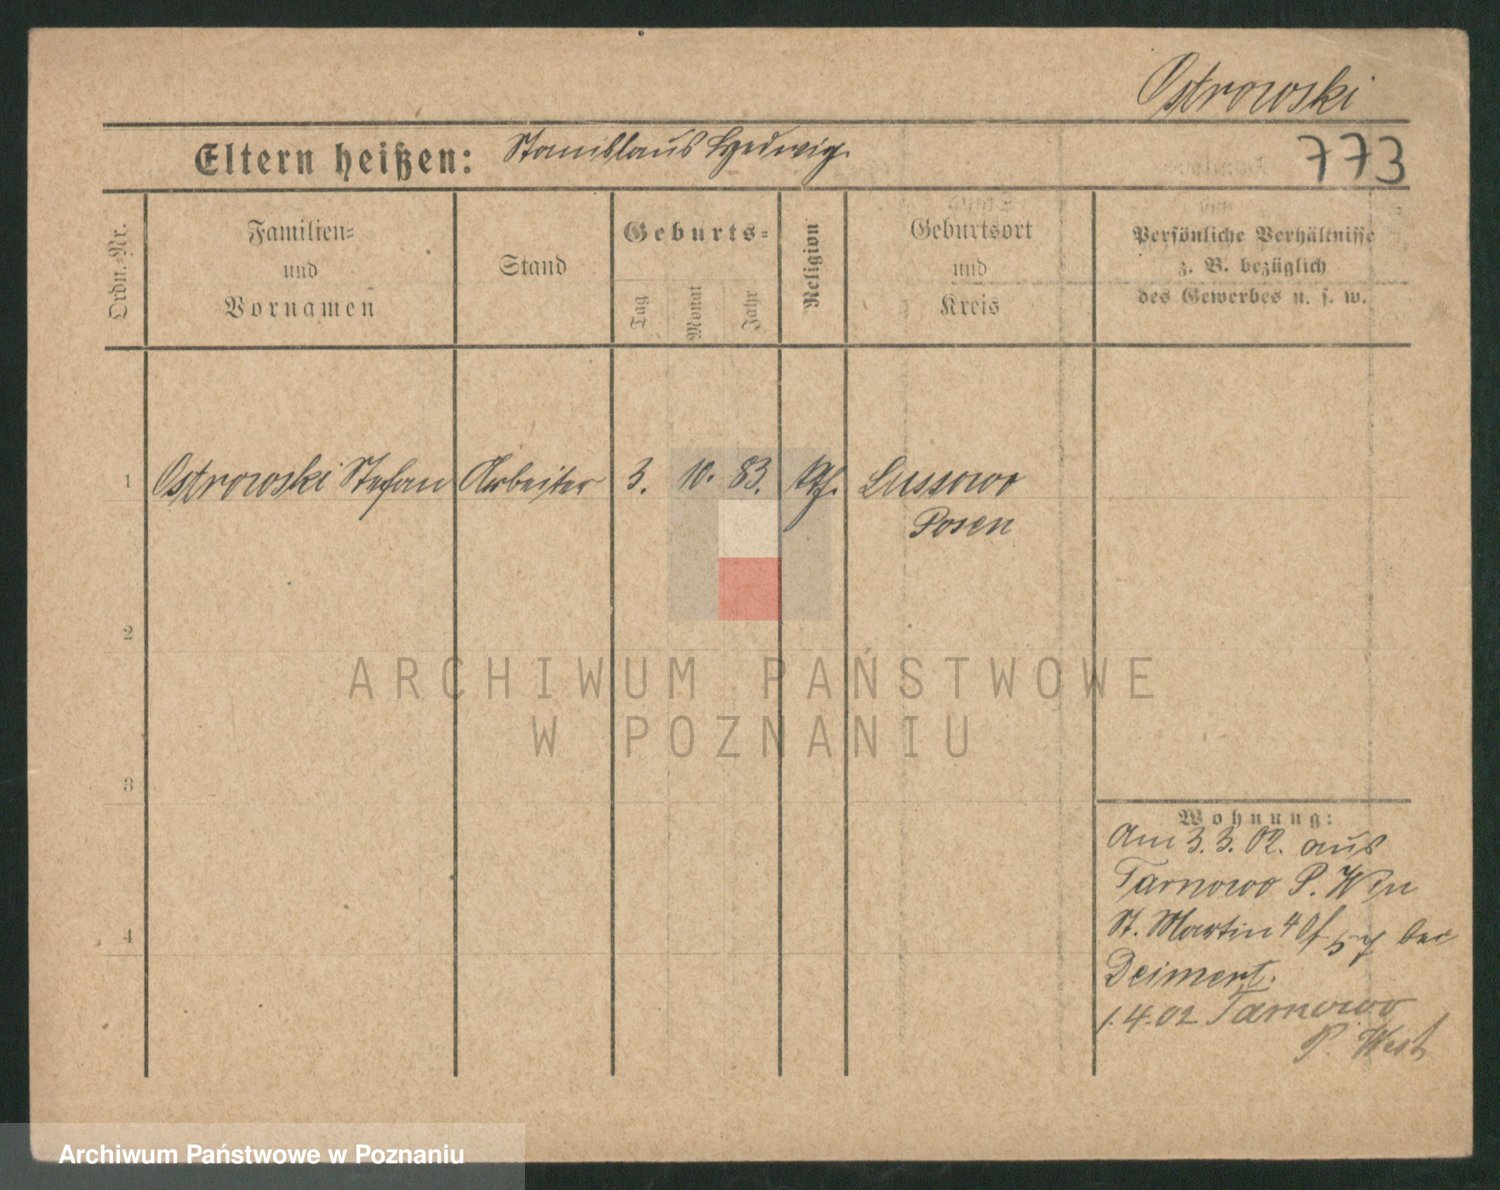 Ostrowski
Eltern heißen: Stanislaus Hedwig
773
Ordn.-Nr.
Familien-
und
Vornamen
Stand
Geburts-
Tag
Monat
Jahr
Religion
Geburtsort
und
Kreis
Persönliche Verhältnisse
z. B. bezüglich
des Gewerbes u. s. w.
1 Ostrowski Stefan Arbeiter 3. 10. 83. Lussowo
Posen
2
3
4
Wohnung:
Am 3.3.02. aus
Tarnowo P. W
St. Martin 40 bei
Deimert.
1.4.02 Tarnowo
P. West
ARCHIWUM PAŃSTWOWE
W POZNANIU
Archiwum Państwowe w Poznaniu